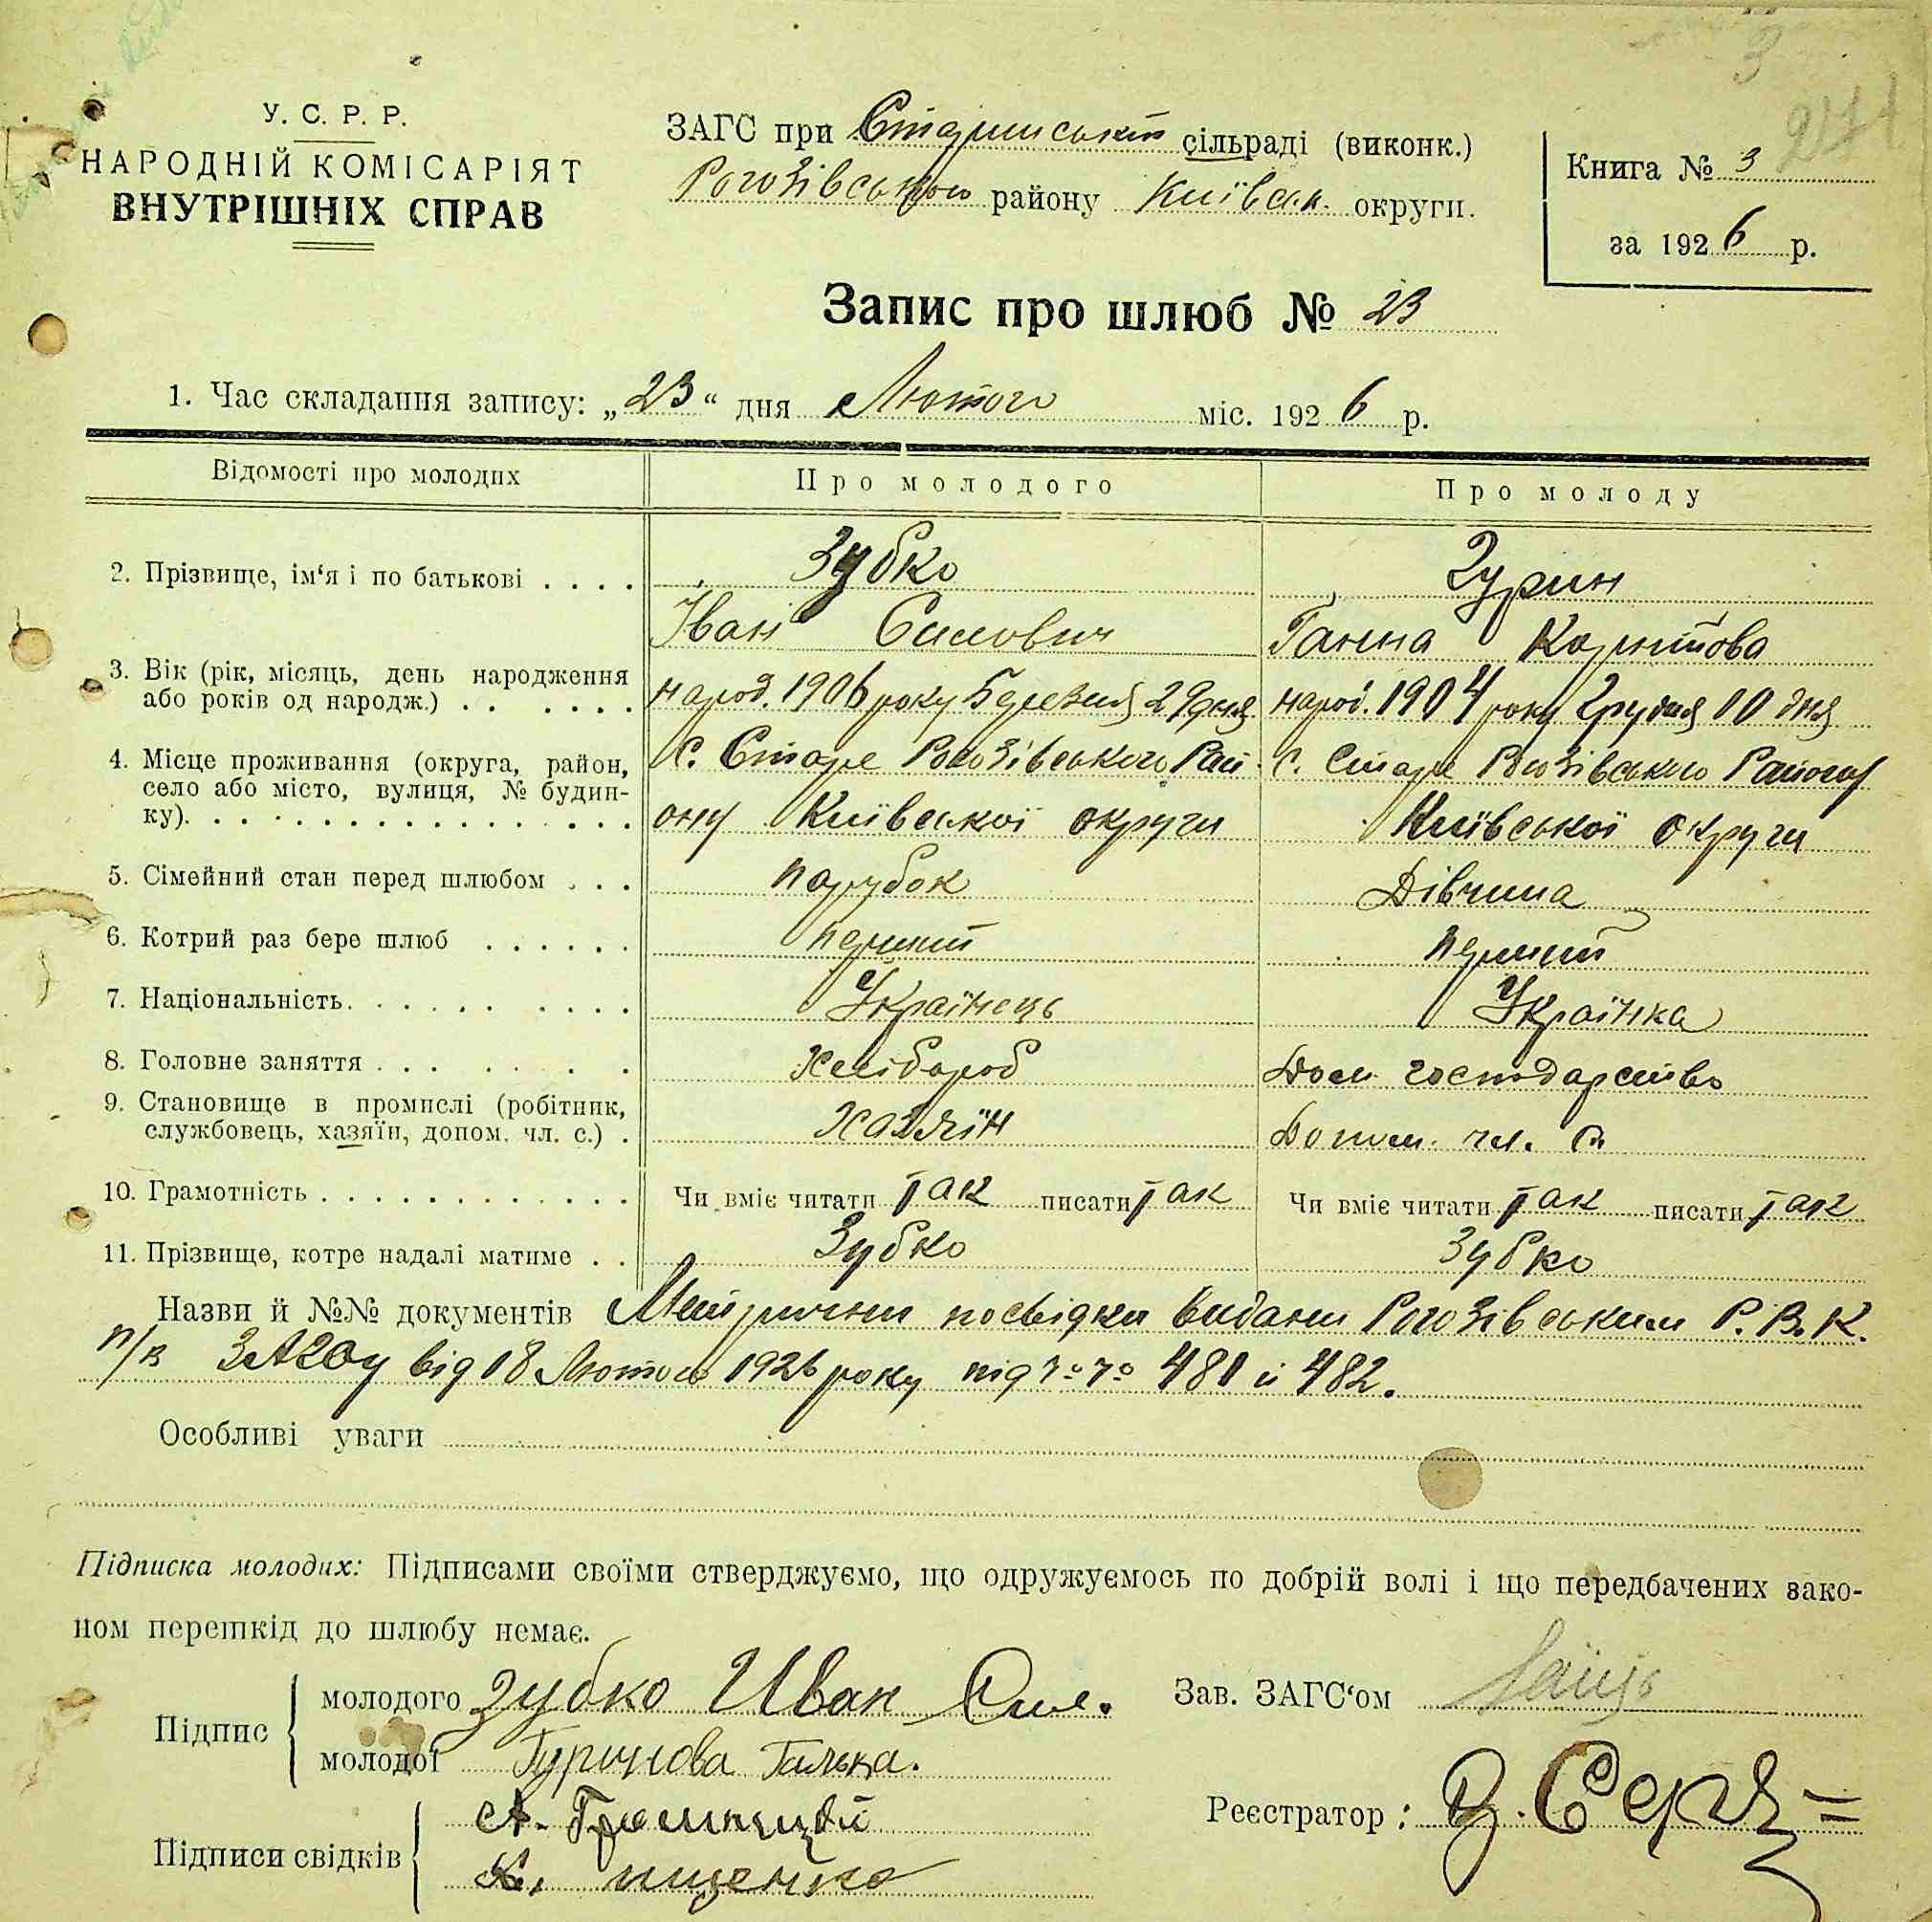 У. С. Р. Р.
НАРОДНІЙ КОМІСАРІЯТ
ВНУТРІШНІХ СПРАВ
ЗАГС при Старинській сільраді (виконк.)
Рогозівського району Київськ. округи.
3
Книга № 3
за 1926 р.
Запис про шлюб № 23
1. Час складання запису: „23“ дня Лютого міс. 1926 р.
Відомості про молодих Про молодого Про молоду
2. Прізвище, ім‘я і по батькові . . . . Зубко Гурин
Іван Силович Ганна
3. Вік (рік, місяць, день народження
або років од народж.) . . . . . . народ. 1906 року Березня 29 дня народ. 1904 року Грудня 10 дня
4. Місце проживання (округа, район,
село або місто, вулиця, № будин-
ку). . . . . . . . . . . . . . . .
с. Старе Рогозівського Рай- с. Старе Рогозівського Району
ону Київської округи Київської округи
5. Сімейний стан перед шлюбом . . . парубок Дівчина
6. Котрий раз бере шлюб . . . . . . перший перший
7. Національність. . . . . . . . . . Українець Українка
8. Головне заняття . . . . . . . Хлібороб Дом. господарство
9. Становище в промислі (робітник,
службовець, хазяїн, допом. чл. с.) . Хазяїн Допом. чл. с.
10. Грамотність . . . . . . . . . . . . Чи вміє читати так писати так Чи вміє читати так писати так
11. Прізвище, котре надалі матиме . . Зубко Зубко
Назви й №№ документів Метричні посвідки видани Рогозівським Р.В.К.
п/в ЗАГСу від 18 Лютого 1926 року під №№ 481 й 482.
Особливі уваги
Підписка молодих: Підписами своїми стверджуємо, що одружуємось по добрій волі і що передбачених зако-
ном перешкід до шлюбу немає.
Підпис
молодого Зубко Иван Сил.
молодої Гуринова Галька.
Підписи свідків
А.
К.
Зав. ЗАГС‘ом
Реєстратор :